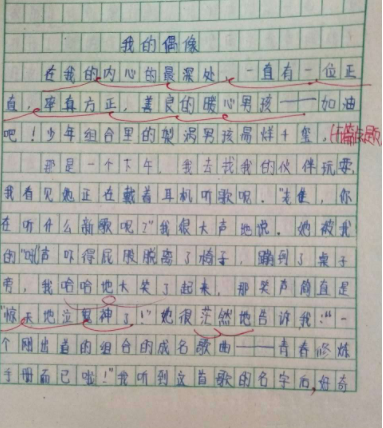 我的偶像
在我的内心的最深处，一直有一位正
直，率真方正，善良的暖心男孩——加油
吧！少年组合里的梨涡男孩高烊十玺，
那是一个下午，我去找我的伙伴玩耍，
我看见她正在戴着耳机听歌呢。"，你
在听什么新歌呢？"我很大声地说。她被我
的"吼"声吓得屁股脱离了椅子，蹦到了桌子
旁，我哈哈地大笑了起来，那笑声简直是
"惊天地泣鬼神了！"她很茫然地告诉我："一
个刚出道的组合的成名歌曲——青春修炼
手册而已啦！"我听到这首歌的名字后，好奇